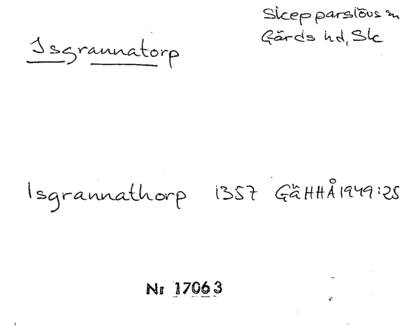 Skepparslövs sn
Gärds hd, Sk
Isgrannatorp
Isgrannathorp 1357 GäHHÅ 1949:25
Nr 17063